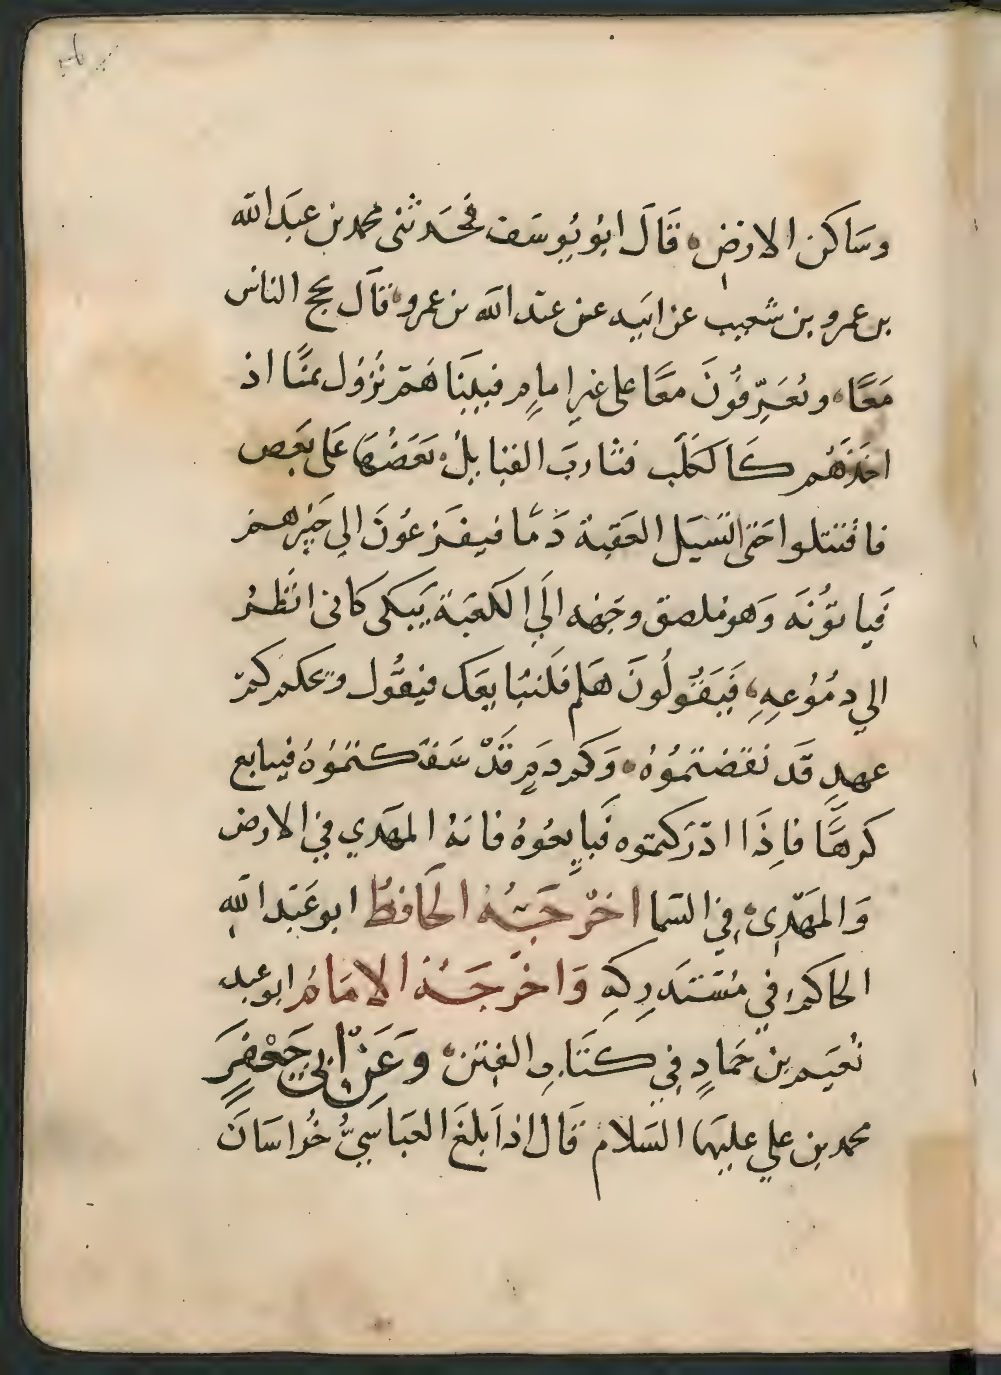 وساكن الارض قال ابو يوسف فحدثنى محمد بن عبد الله
بن عمرو بن شعيب عن ابيه عن عبد الله بن عمرو قال يحج الناس
معًا ويُعَرِّفُونَ معًا على غير امامٍ فبينا هم نُزُول بمنًا اذ
اخذهم كالكَلَب فثارت القبايل بعضُها على بعض
فاقتتلوا حتى تسيل العقبة دمًا فيفزعون الى خيرهم
فياتونه وهو ملصق وجهه الى الكعبة يبكى كانى انظر
الى دموعه فيقولون هلم فلنبايعك فيقول ويحكم كم
عهدٍ قد نقضتموه وكم دمٍ قد سفكتموه فيبايع
كرهًا فاذا ادركتموه فبايعوه فانه المهدي في الارض
والمهدي في السما اخرجه الحافظ ابو عبد الله
الحاكم في مستدركه واخرجه الامام ابو عبد
نعيم بن حماد في كتاب الفتن وعن ابي جعفر
محمد بن علي عليهما السلام قال اذا بلغ العباسيُّ خراسان